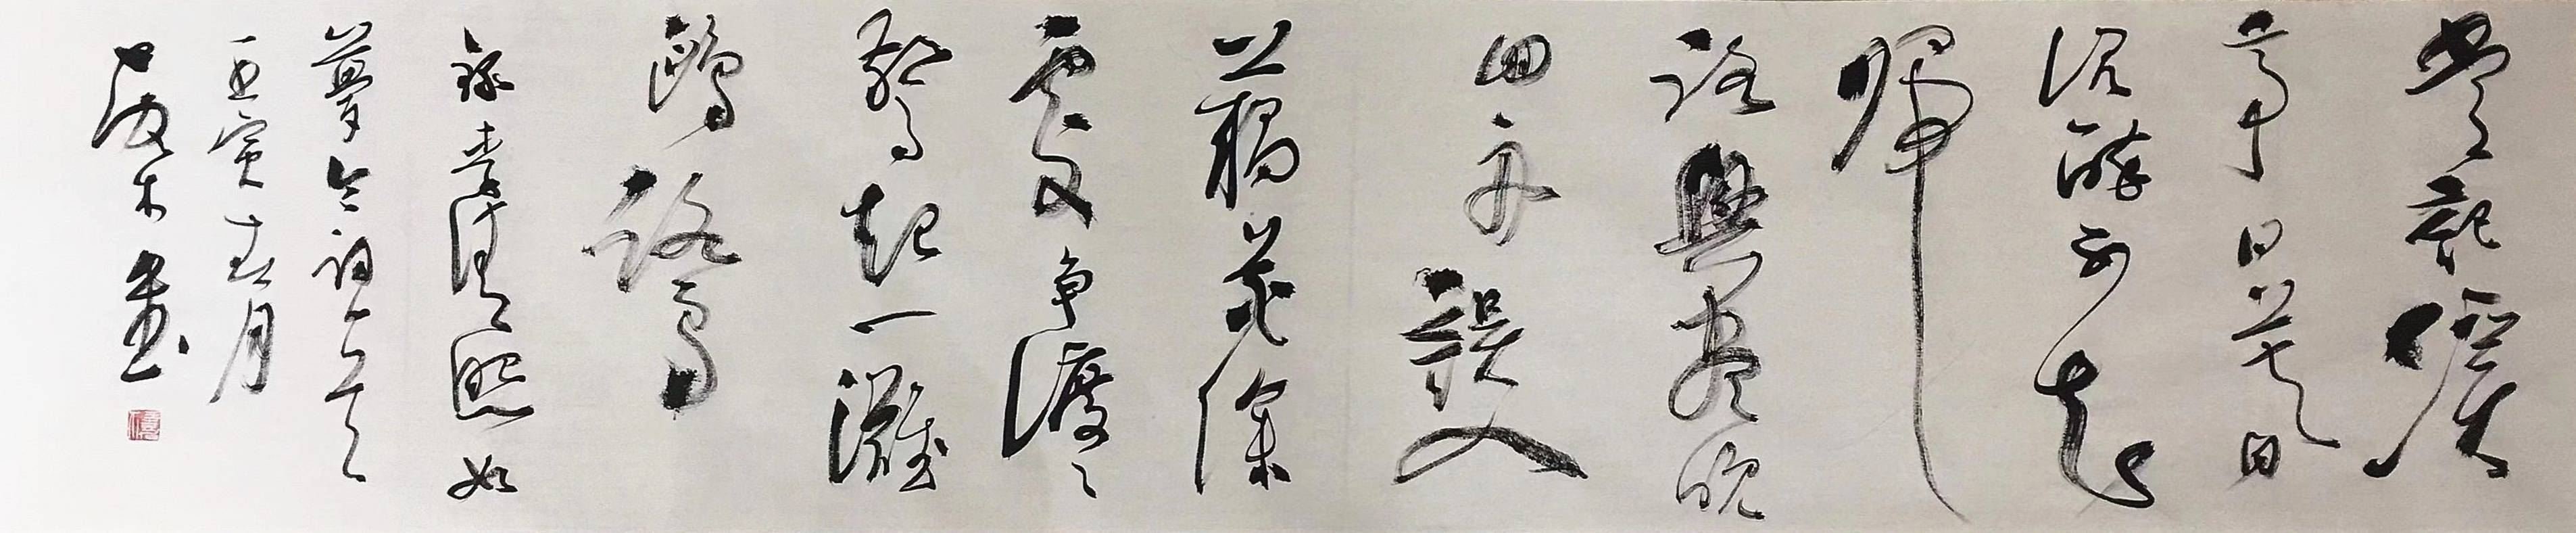 常記溪
亭日暮
沉醉不知
歸
路興盡晚
回舟誤入
藕花深
處争渡〻
驚起一灘
鷗鷺
錄李清照如
夢令詞一首
壬寅春月
木書